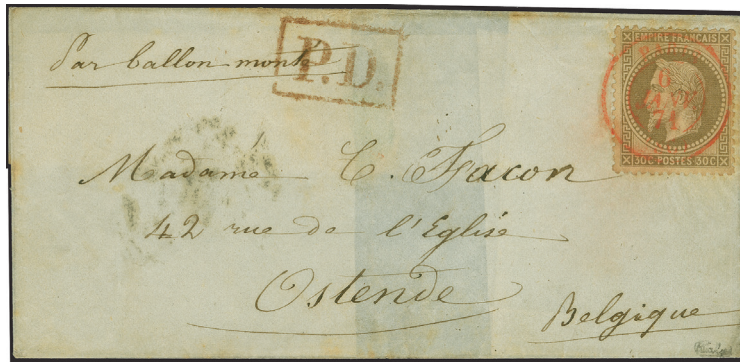 Par ballon monté
P.D.
EMPIRE FRANÇAIS
30C POSTES 30C
Madame C. Facon
42 rue de l'Eglise
Ostende
Belgique